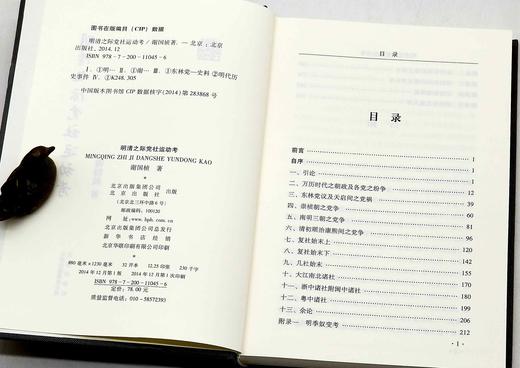 图书在版编目（CIP）数据
明清之际党社运动考 / 谢国桢著. — 北京：北京
出版社，2014.12
ISBN 978-7-200-11045-6
Ⅰ. ①明… Ⅱ. ①谢… Ⅲ. ①东林党—史料 ②明代历
史事件 Ⅳ. ①K248.305
中国版本图书馆 CIP 数据核字（2014）第 283868 号
明清之际党社运动考
MINGQING ZHI JI DANGSHE YUNDONG KAO
谢国桢 著
北京出版集团公司
北京出版社 出版
（北京北三环中路6号）
邮政编码：100120
网址：www.bph.com.cn
北京出版集团公司总发行
新华书店经销
北京华联印刷有限公司印刷
880毫米×1230毫米 32开本 12.25印张 230千字
2014年12月第1版 2014年12月第1次印刷
ISBN 978-7-200-11045-6
定价：78.00元
质量监督电话：010-58572393
目录
目录
前言 1
自序 1
一、引论 1
二、万历时代之朝政及各党之纷争
三、东林党议及天启间之党祸
四、崇祯朝之党争
五、南明三朝之党争
六、清初顺治康熙间之党争
七、复社始末上
八、复社始末下
九、几社始末
十、大江南北诸社
十一、浙中诸社附闽中诸社 179
十二、粤中诸社 196
十三、余论 206
附录一 明季奴变考 212
· 1 ·